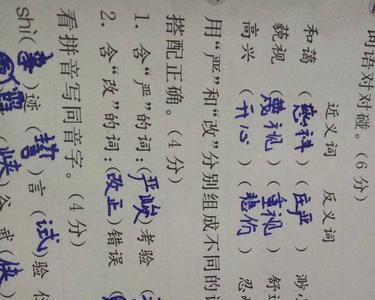 词语对对碰。(6分)
近义词 反义词
和蔼 (慈祥) (庄严) 渺小
藐视 (蔑视) (重视) 舒
高兴 (开心) (悲伤) 忍
用“严”和“改”分别组成不同的
搭配正确。(4分)
1. 含“严”的词：(严峻)考验
2. 含“改”的词：(改正)错误
看拼音写同音字。(4分)
shì(事)迹 (誓)言 (试)验
(峡)谷 武(侠